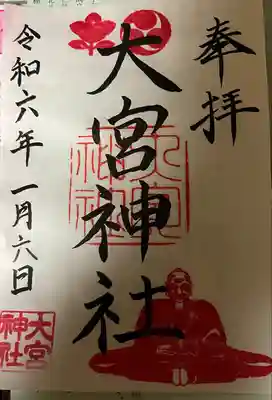 奉拝
大宮神社
令和六年一月六日
大宮
神社
大宮
神社